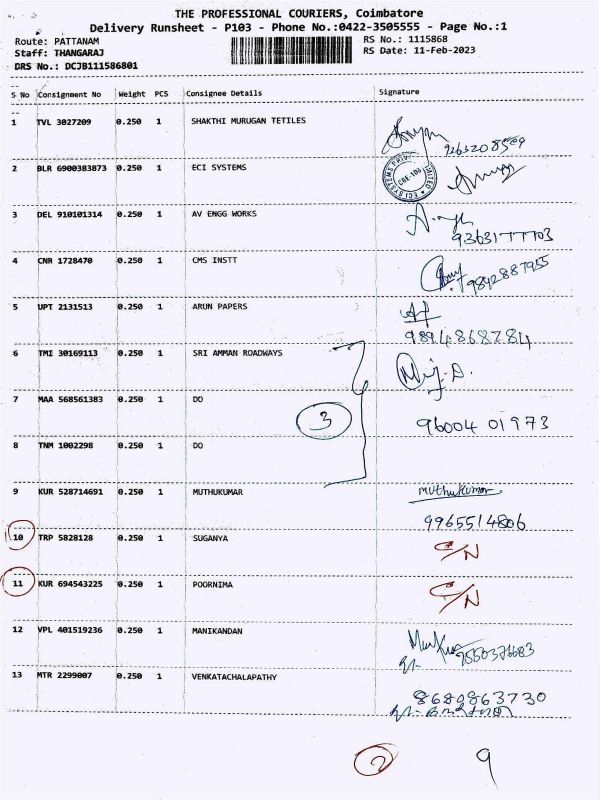 THE PROFESSIONAL COURIERS, Coimbatore
Delivery Runsheet - P103 - Phone No.:0422-3505555 - Page No.:1
Route: PATTANAM
Staff: THANGARAJ
DRS No.: DCJB111586801
RS No.: 1115868
RS Date: 11-Feb-2023
S No Consignment No Weight PCS Consignee Details Signature
1 TVL 3027209 0.250 1 SHAKTHI MURUGAN TETILES
2 BLR 6900383873 0.250 1 ECI SYSTEMS
3 DEL 910101314 0.250 1 AV ENGG WORKS
9363177703
4 CNR 1728470 0.250 1 CMS INSTT
9842887955
5 UPT 2131513 0.250 1 ARUN PAPERS
6 TMI 30169113 0.250 1 SRI AMMAN ROADWAYS
7 MAA 568561383 0.250 1 DO
3
96004 01973
8 TNM 1002298 0.250 1 DO
9 KUR 528714691 0.250 1 MUTHUKUMAR muthukumar
9965514806
10 TRP 5828128 0.250 1 SUGANYA C/N
11 KUR 694543225 0.250 1 POORNIMA C/N
12 VPL 401519236 0.250 1 MANIKANDAN
13 MTR 2299007 0.250 1 VENKATACHALAPATHY
8680863730
2 9